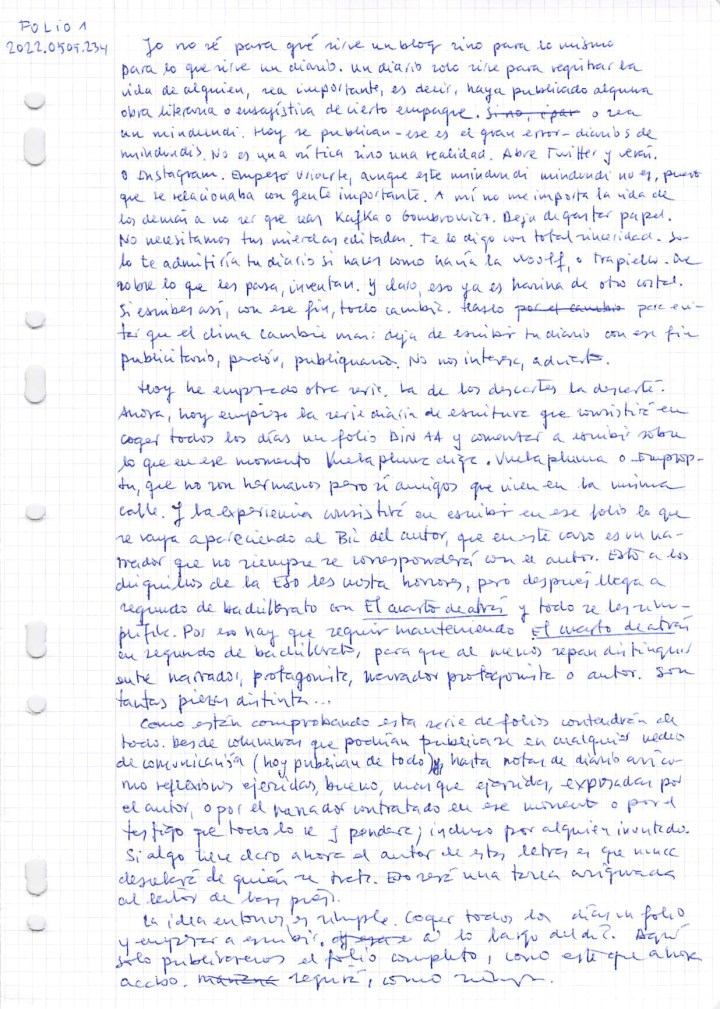 FOLIO 1
2022.0505.234
Yo no sé para qué sirve un blog sino para lo mismo
para lo que sirve un diario. Un diario solo sirve para registrar la
vida de alguien, sea importante, es decir, haya publicado alguna
obra literaria o ensayística de cierto empaque. Si no, o sea
un mindundi. Hoy se publican -ese es el gran error- diarios de
mindundis. No es una crítica sino una realidad. Abre Twitter y verán.
O Instagram. Empezó Uriarte, aunque este mindundi mindundi no es, puesto
que se relacionaba con gente importante. A mí no me importa la vida de
los demás a no ser que sean Kafka o Gombrowicz. Deja de gastar papel.
No necesitamos tus mierdas editadas. Te lo digo con total sinceridad. So-
lo te admitiría tu diario si haces como hacía la Woolf, o Trapiello. Que
sobre lo que les pasa, inventan. Y claro, eso ya es harina de otro costal.
Si escribes así, con ese fin, todo cambia. Hazlo por el cambio para evi-
tar que el clima cambie más: deja de escribir tu diario con ese fin
publicitario, perdón, publiquario. No nos interesa, advierto.
Hoy he empezado otra serie. La de los descartes la descarté.
Ahora, hoy empiezo la serie diaria de escritura que consistirá en
coger todos los días un folio DIN A4 y comenzar a escribir sobre
lo que en ese momento Vuelapluma diga. Vuelapluma o Impromp-
tu, que no son hermanos pero sí amigos que viven en la misma
calle. Y la experiencia consistirá en escribir en ese folio lo que
se vaya apareciendo al Bic del autor, que en este caso es un na-
rrador que no siempre se corresponderá con el autor. Esto a los
chiquillos de la ESO les cuesta horrores, pero después llega a
segundo de bachillerato con El cuarto de atrás y todo se les sim-
plifica. Por eso hay que seguir manteniendo El cuarto de atrás
en segundo de bachillerato, para que al menos sepan distinguir
entre narrador, protagonista, narrador protagonista o autor. Son
tantas piezas distintas...
Como están comprobando esta serie de folios contendrán de
todo. Desde columnas que podrían publicarse en cualquier medio
de comunicación (hoy publican de todo), hasta notas de diario así co-
mo reflexiones ejercidas, bueno, más que ejercidas, expresadas por
el autor, o por el narrador contratado en ese momento o por el
testigo que todo lo ve y pondera; incluso por alguien inventado.
Si algo tiene claro ahora el autor de estas letras es que nunca
desvelará de quién se trata. Eso será una tarea asignada
al lector de
La idea entonces es simple. Coger todos los días un folio
y empezar a escribir. a lo largo del día. Aquí
solo publicaremos el folio completo, como este que ahora
acabo. mañana seguiré, como siempre.